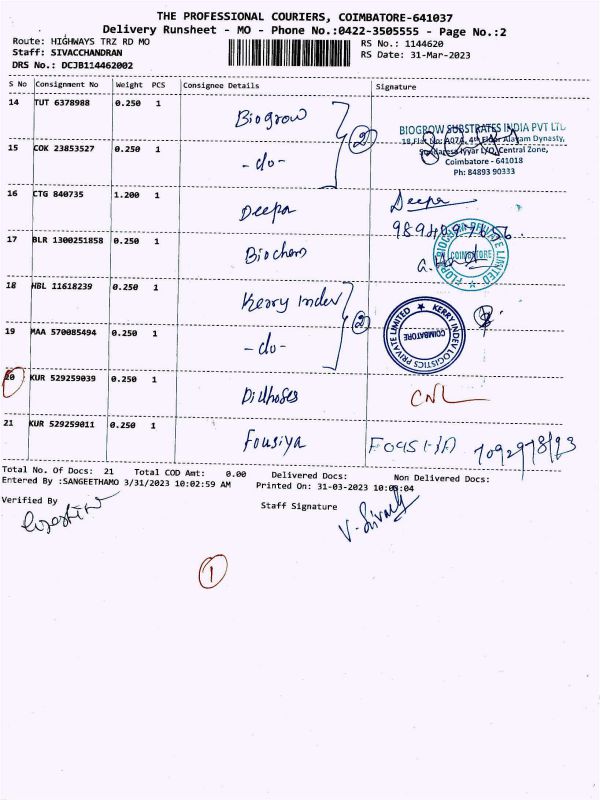 THE PROFESSIONAL COURIERS, COIMBATORE-641037
Delivery Runsheet - MO - Phone No.:0422-3505555 - Page No.:2
Route: HIGHWAYS TRZ RD MO
RS No.: 1144620
Staff: SIVACCHANDRAN
RS Date: 31-Mar-2023
DRS No.: DCJB114462002
S No Consignment No Weight PCS Consignee Details Signature
14 TUT 6378988 0.250 1 Biogrow
BIOGROW SUBSTRATES INDIA PVT LTD
Central Zone,
Coimbatore - 641018
Ph: 84893 90333
15 COK 23853527 0.250 1 -do-
2
16 CTG 840735 1.200 1 Deepa Deepa
17 BLR 1300251858 0.250 1 Biochem
COIMBATORE
18 HBL 11618239 0.250 1 Kerry Indev
KERRY INDEV LOGISTICS PRIVATE LIMITED
COIMBATORE
19 MAA 570085494 0.250 1 -do-
2
20 KUR 529259039 0.250 1 Dilhoses CNL
21 KUR 529259011 0.250 1 Fousiya
Total No. Of Docs: 21 Total COD Amt: 0.00 Delivered Docs: Non Delivered Docs:
Entered By :SANGEETHAMO 3/31/2023 10:02:59 AM Printed On: 31-03-2023 10:03:04
Verified By
Staff Signature
1